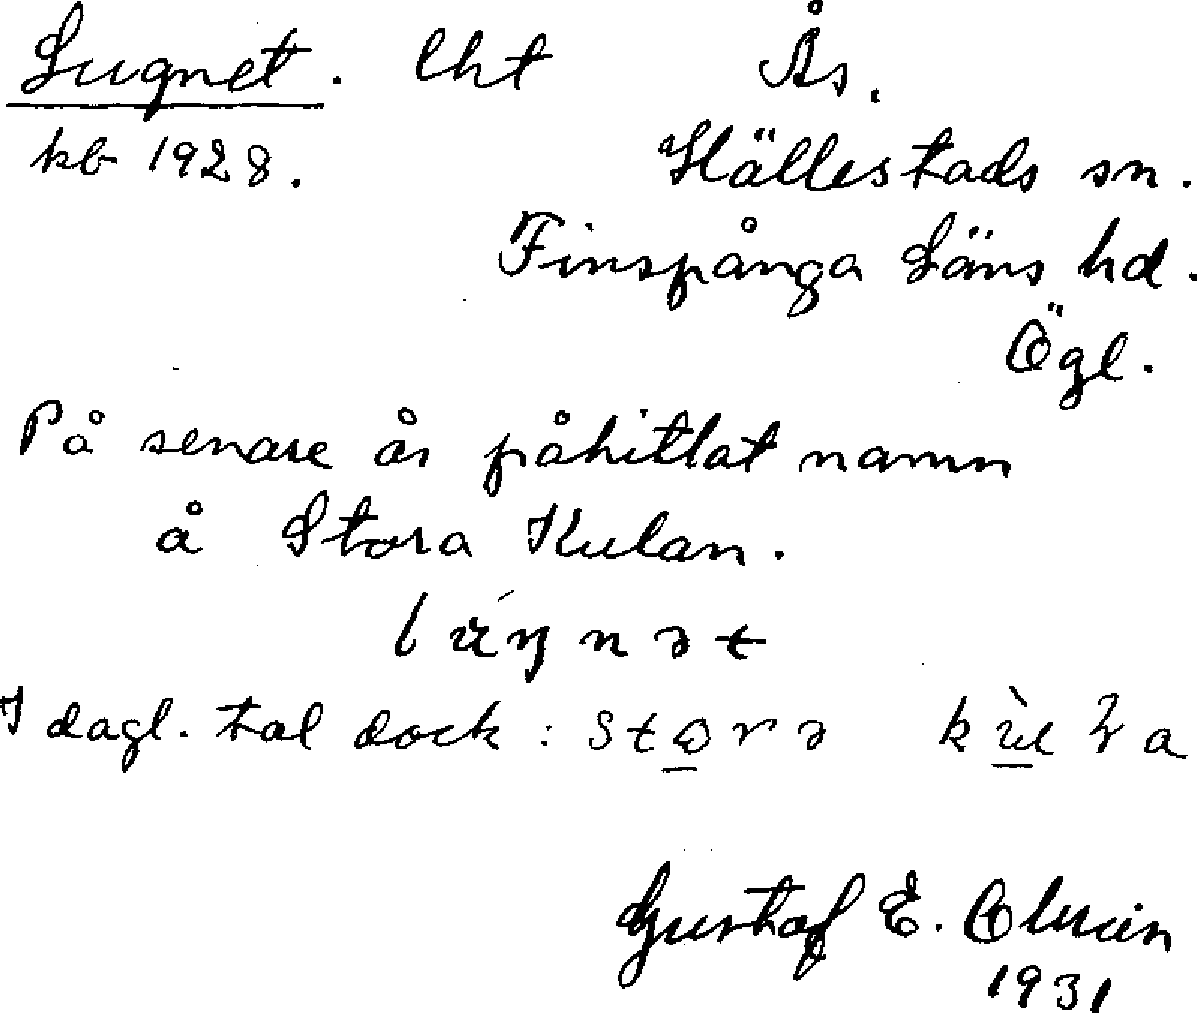 Lugnet. lht Ås.
kb 1928. Hällestads sn.
Finspånga Läns hd.
Ögl.
På senare år påhittat namn
å Stora Kulan.
lúŋnət
I dagl. tal dock: stɷrə kùɽa
Gustaf E.
1931